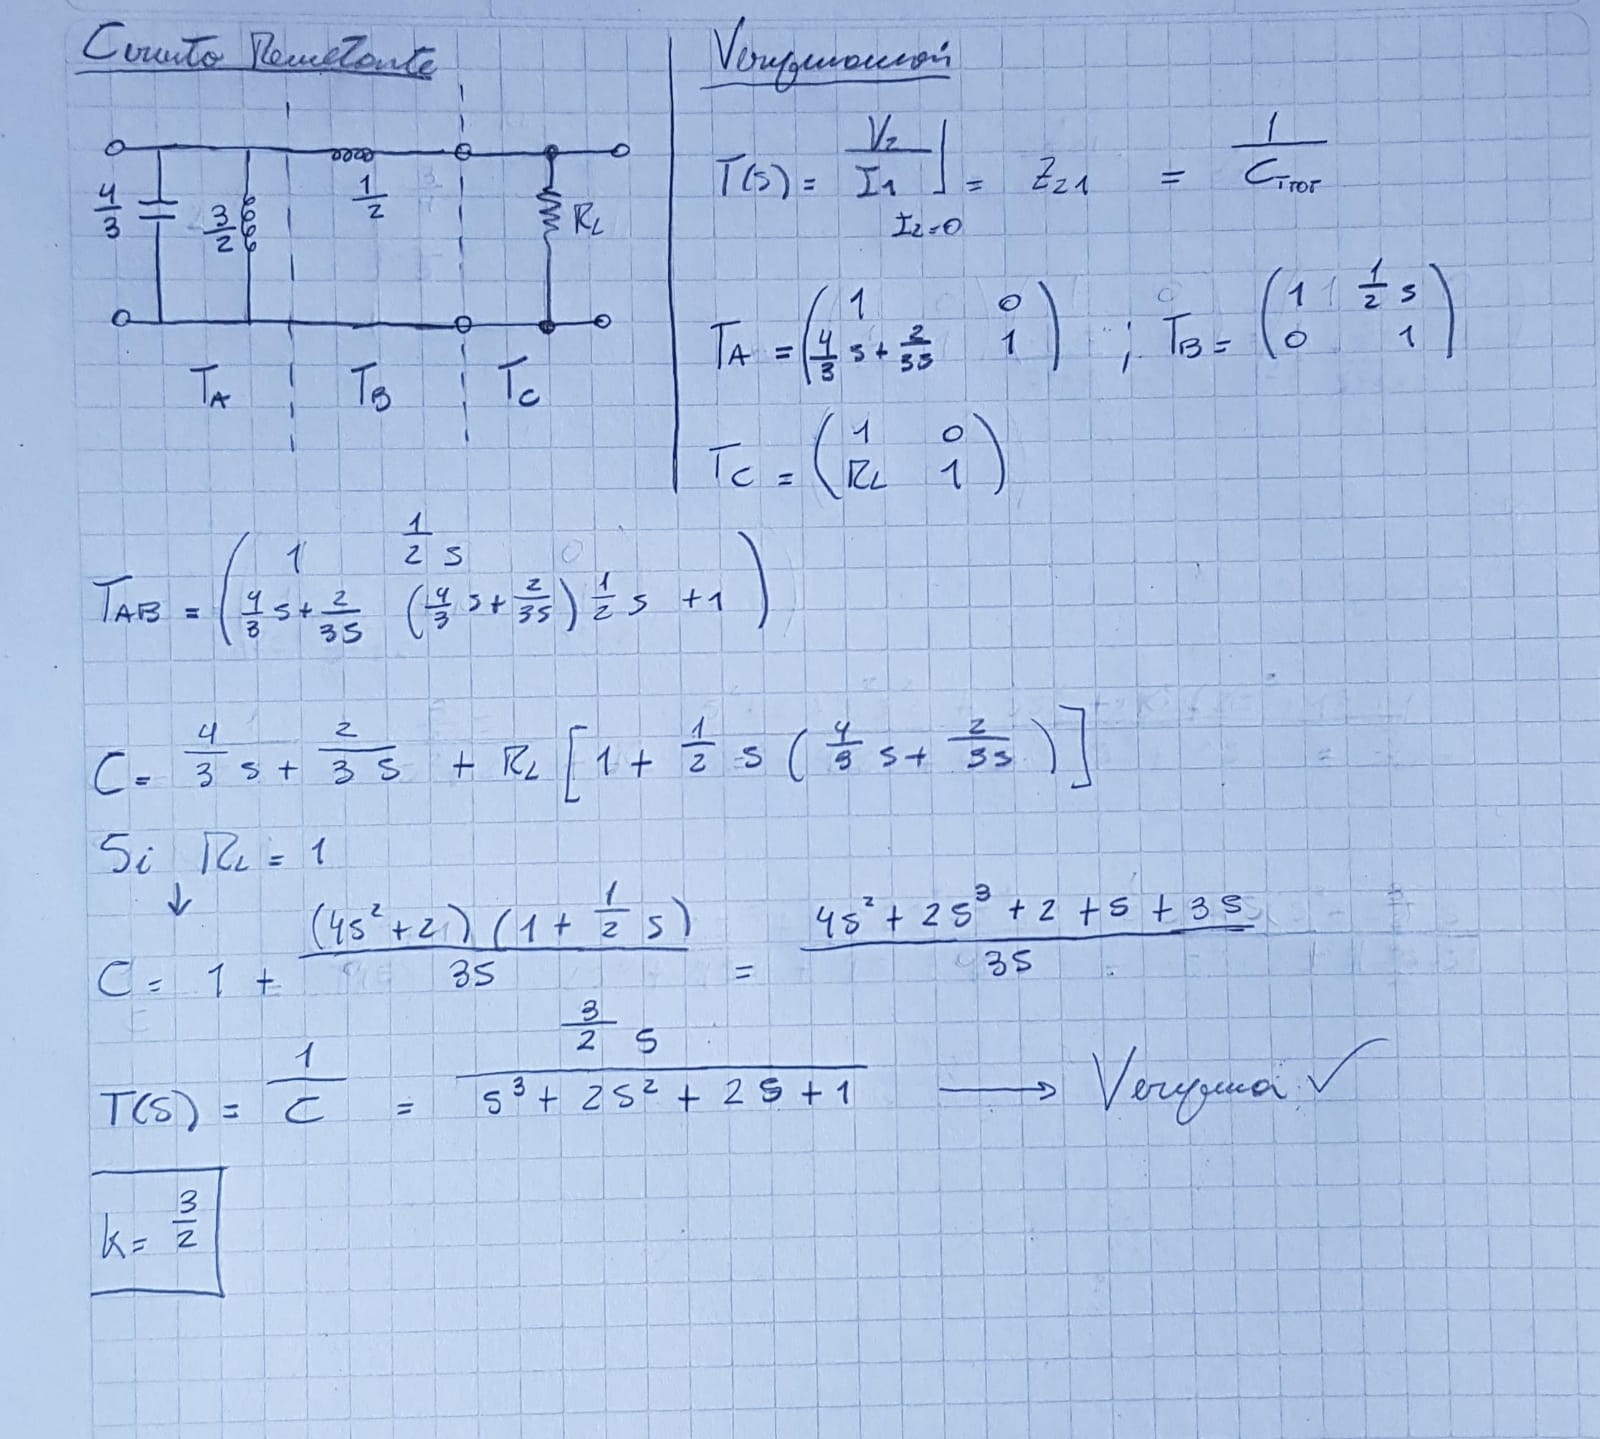 Circuito Resultante
4/3
3/2
1/2
RL
TA
TB
TC
Verificación
T(s) = V2/I1 ]I2=0 = Z21 = 1/CTTOT
TA = (1 0; 4/3 s + 2/3s 1) ; TB = (1 1/2 s; 0 1)
TC = (1 0; RL 1)
TAB = (1 1/2 s; 4/3 s + 2/3s (4/3 s + 2/3s) 1/2 s + 1)
C = 4/3 s + 2/3s + RL [1 + 1/2 s (4/3 s + 2/3s)]
Si RL = 1
↓
C = 1 + (4s² + 2)(1 + 1/2 s)/3s = 4s² + 2s³ + 2 + s + 3s/3s
T(s) = 1/C = 3/2 s/s³ + 2s² + 2s + 1 → Verifica ✓
k = 3/2